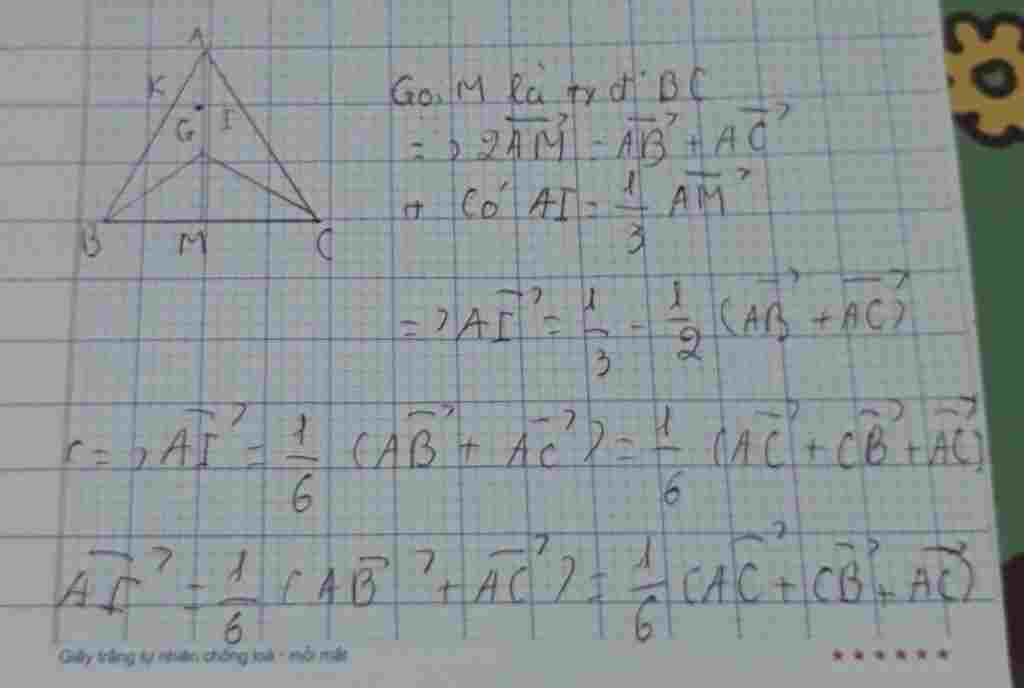 A
K
G I
B M C
Gọi M là tr đ' BC
=> 2AM⃗ = AB⃗ + AC⃗
+ Có AI = 1/3 AM⃗
=> AI⃗ = 1/3 - 1/2 (AB⃗ + AC⃗)
r => AI⃗ = 1/6 (AB⃗ + AC⃗) = 1/6 (AC⃗ + CB⃗ + AC⃗)
AI⃗ = 1/6 (AB⃗ + AC⃗) = 1/6 (AC⃗ + CB⃗ + AC⃗)
Giấy trắng tự nhiên chống loá - mỏi mắt